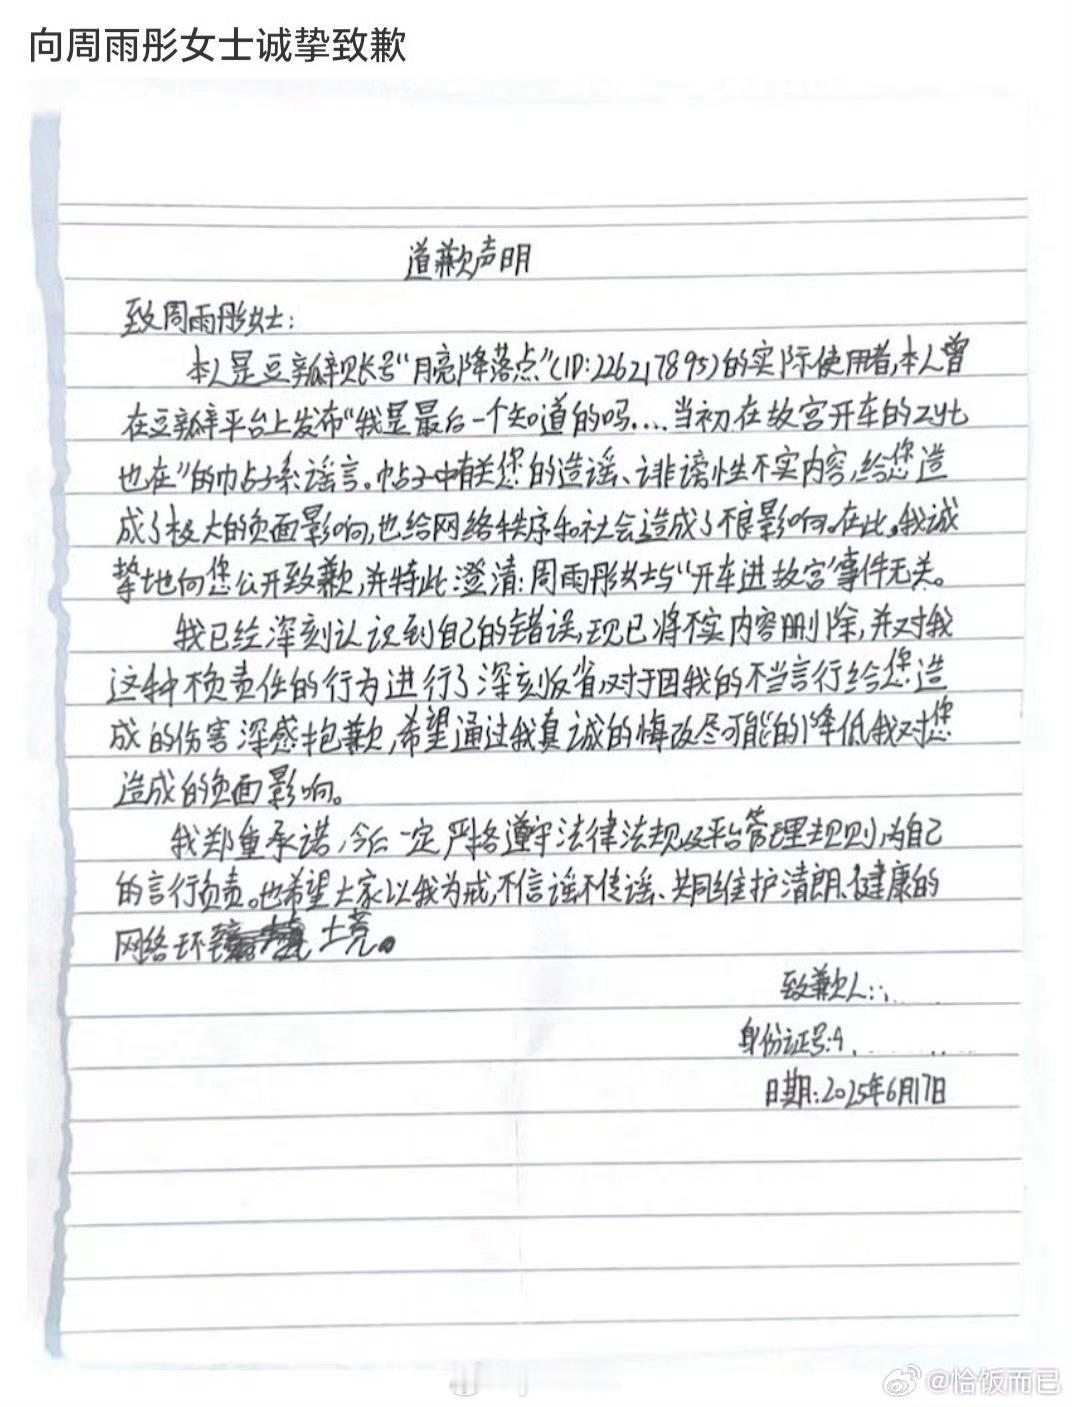 向周雨彤女士诚挚致歉
道歉声明
致周雨彤女士:
本人是豆瓣账号“月亮降落点”(ID:226217895)的实际使用者,本人曾
在豆瓣平台上发布“我是最后一个知道的吗....当初在故宫开车的zyt
也在”的帖子系谣言。帖子中有关您的造谣、诽谤性不实内容,给您造
成了极大的负面影响,也给网络秩序和社会造成了不良影响。在此,我诚
挚地向您公开致歉,并特此澄清:周雨彤女士与“开车进故宫”事件无关。
我已经深刻认识到自己的错误,现已将不实内容删除,并对我
这种不负责任的行为进行了深刻反省,对于因我的不当言行给您造
成的伤害深感抱歉,希望通过我真诚的悔改尽可能的降低我对您
造成的负面影响。
我郑重承诺,今后一定严格遵守法律法规及平台管理规则,为自己
的言行负责。也希望大家以我为戒,不信谣不传谣、共同维护清朗、健康的
网络环境。
致歉人:
身份证号:4
日期:2025年6月17日
@恰饭而已